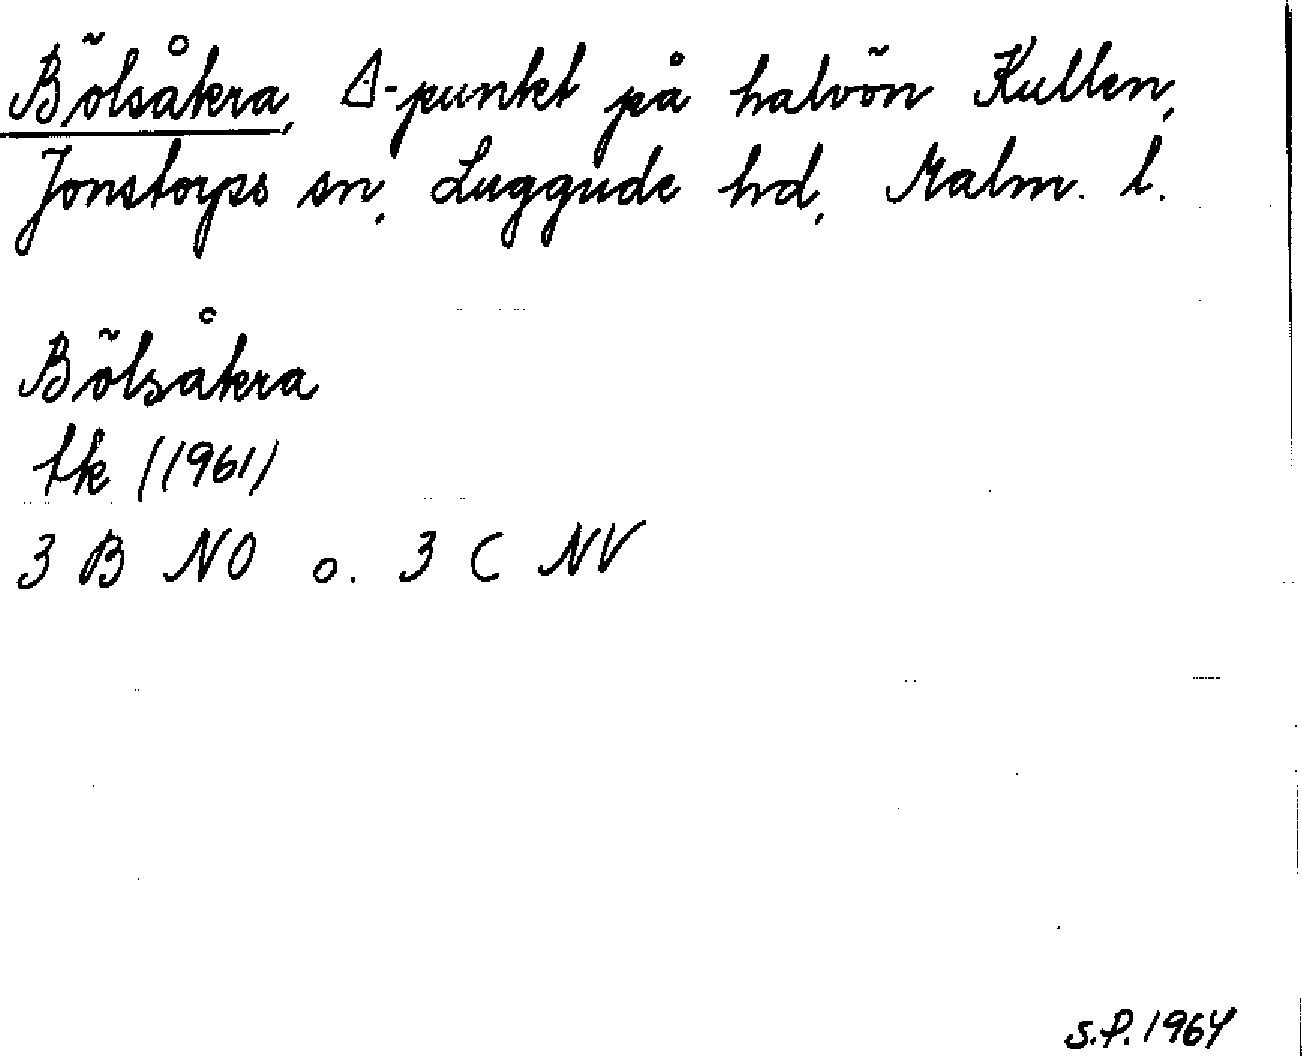 Bölsåkra, Δ-punkt på halvön Kullen,
Jonstorps sn, Luggude hd, Malm. l.
Bölsåkra
tk (1961)
3 B NO o. 3 C NV
S.P. 1964